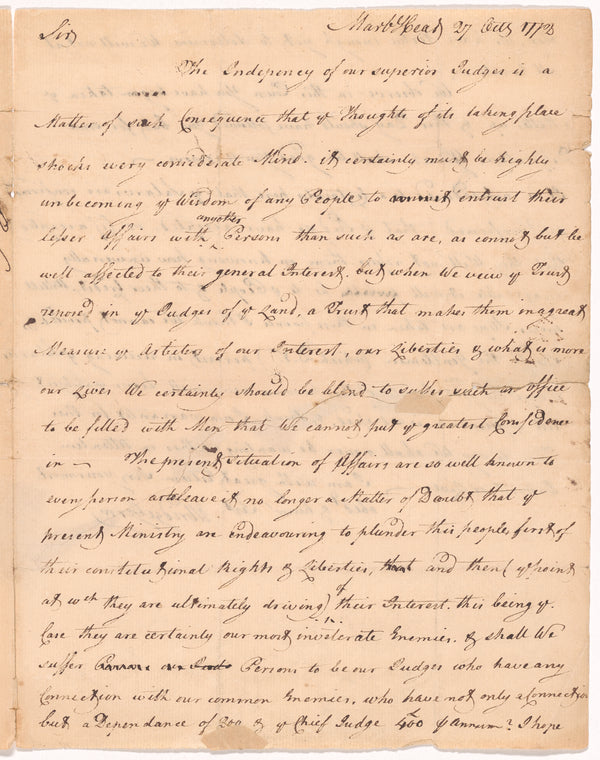 Sir
Marb Head 27 Octr 1772
The Indepency of our superior Judges is a
Matter of such Consequence that ye Thoughts of its taking place
shocks every considerate Mind. it certainly must be highly
unbecoming ye Wisdom of any People to entrust their
anyother
lesser Affairs with Persons than such as are, as connot but be
well affected to their general Interest. but when We veiw ye Trust
reposed in ye Judges of ye Land, a Trust that makes them in a great
Measure ye Arbiters of our Interest, our Liberties & what is more
our Lives We certainly should be blind to suffer such an office
to be filled with Men that We cannot put ye greatest Confidence
in — The present Situation of Affairs are so well known to
every person as leave it no longer a Matter of Doubt that ye
present Ministry are endeavouring to plunder this peoples first of
their constitutional Rights & Liberties, that and then (ye point
at wch they are ultimately driving) of their Interest. this being ye
in
Case they are certainly our most inveterate Enemies. & shall We
suffer Persons to be our Judges who have any
Connection with our common Enemies, who have not only a Connection
but a Dependance of 200 & ye Chief Judge 400 ⅌ Annum? I hope